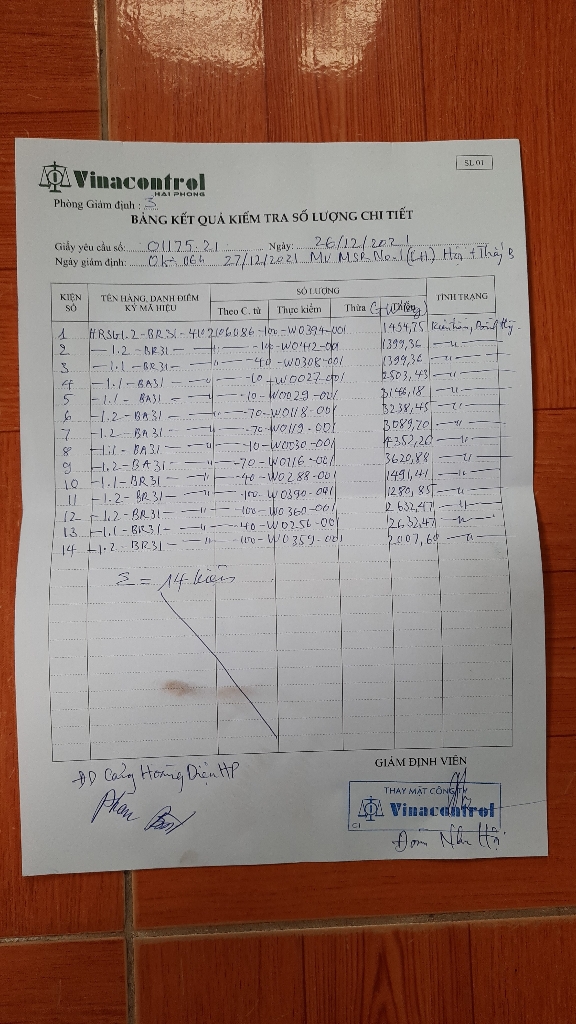 SL 01
Vinacontrol
HAI PHONG
Phòng Giám định : 3
BẢNG KẾT QUẢ KIỂM TRA SỐ LƯỢNG CHI TIẾT
Giấy yêu cầu số: 01175.21 Ngày: 26/12/2021
Ngày giám định: 06h 27/12/2021 MV MSR No.1
KIỆN SỐ TÊN HÀNG, DANH ĐIỂM KÝ MÃ HIỆU SỐ LƯỢNG TÌNH TRẠNG
Theo C. từ Thực kiểm Thừa
1 HRSG1.2-BR31-4102106086-100-W0394-001 1454,75
2 — 1.2-BR31 — " — 10-W0442-001 1399,36 —"—
3 — 1.1-BR31 — " — 40-W0308-001 1399,36 —"—
4 — 1.1-BA31 — " — 10-W0027-001 2503,43 —"—
5 — 1.1-BA31 — " — 10-W0029-001 2146,18 —"—
6 — 1.2-BA31 — " — 70-W0118-001 3238,45 —"—
7 — 1.2-BA31 — " — 70-W0119-001 3089,70 —"—
8 — 1.1-BA31 — " — 10-W0030-001 4352,20 —"—
9 — 1.2-BA31 — " — 70-W0116-001 3620,88 —"—
10 — 1.1-BR31 — " — 40-W0288-001 1491,41 —"—
11 — 1.2-BR31 — " — 100-W0390-001 1280,85 —"—
12 — 1.2-BR31 — " — 100-W0360-001 2632,47 —"—
13 — 1.1-BR31 — " — 40-W0256-001 2632,47 —"—
14 — 1.2-BR31 — " — 100-W0359-001 2007,60 —"—
Σ = 14 kiện
ĐD Cảng Hoàng Diệu HP
GIÁM ĐỊNH VIÊN
THAY MẶT CÔNG TY
Vinacontrol